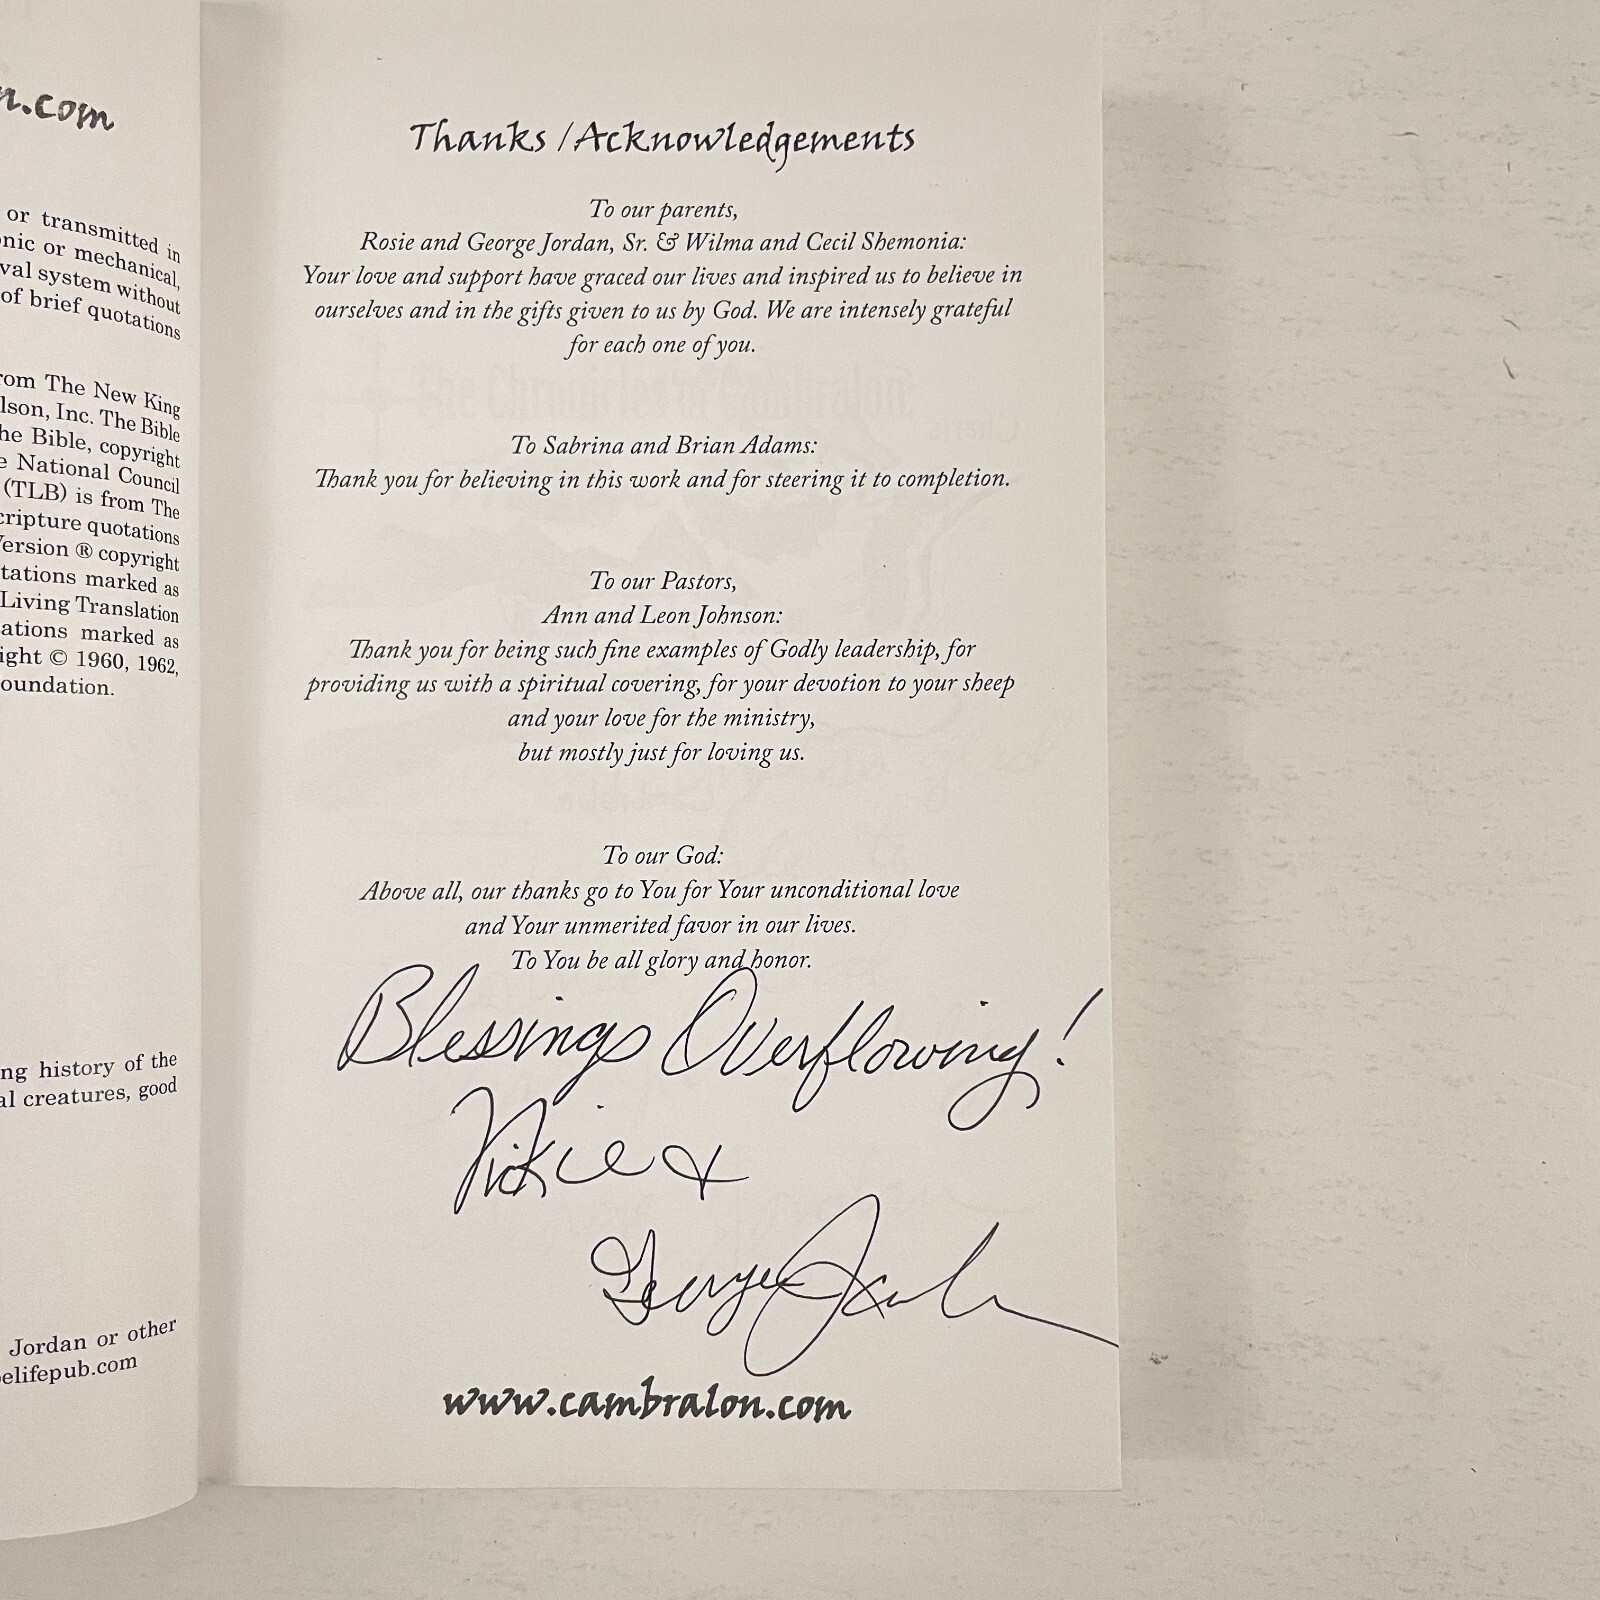 n.com
or transmitted in
onic or mechanical,
val system without
of brief quotations
rom The New King
lson, Inc. The Bible
he Bible, copyright
e National Council
(TLB) is from The
cripture quotations
Version ® copyright
tations marked as
Living Translation
ations marked as
ight © 1960, 1962,
oundation.
ng history of the
al creatures, good
Jordan or other
elifepub.com
Thanks / Acknowledgements
To our parents,
Rosie and George Jordan, Sr. & Wilma and Cecil Shemonia:
Your love and support have graced our lives and inspired us to believe in
ourselves and in the gifts given to us by God. We are intensely grateful
for each one of you.
To Sabrina and Brian Adams:
Thank you for believing in this work and for steering it to completion.
To our Pastors,
Ann and Leon Johnson:
Thank you for being such fine examples of Godly leadership, for
providing us with a spiritual covering, for your devotion to your sheep
and your love for the ministry,
but mostly just for loving us.
To our God:
Above all, our thanks go to You for Your unconditional love
and Your unmerited favor in our lives.
To You be all glory and honor.
Blessings Overflowing!
Nickie &
George Jordan
www.cambralon.com